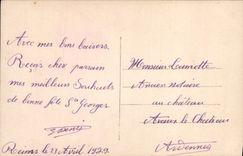 Avec mes bons baisers.
Reçois cher parrain
mes meilleurs Souhaits
de bonne fête St Georges
Reims le 23 Avril 1929
Monsieur
Ancien Notaire
au château
le Château
Ardennes